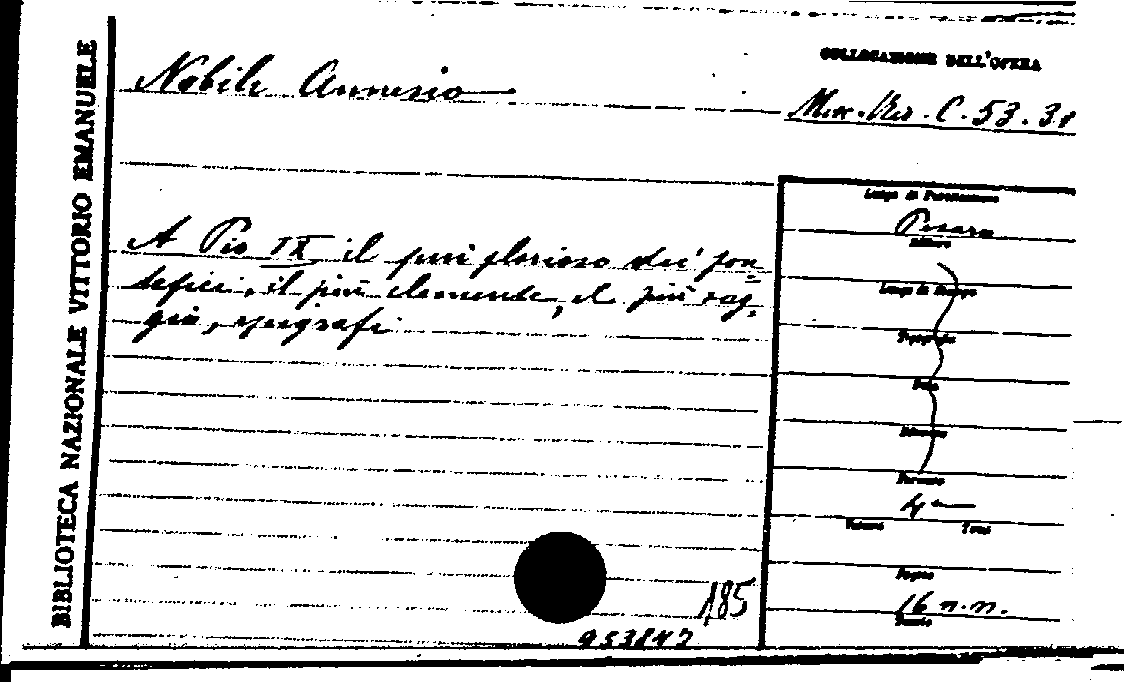 BIBLIOTECA NAZIONALE VITTORIO EMANUELE
COLLOCAZIONE DELL'OPERA
Nobile Annesio
C. 53. 31
A Pio IX il più glorioso dei pon=
tefici, il più clemente, il più sag=
gio, epigrafi
Luogo di Pubblicazione
Pesaro
Editore
Luogo di Stampa
Tipografia
Data
Edizione
Formato
4º
Volumi Tomi
Pagine
16 n.n.
185
953847